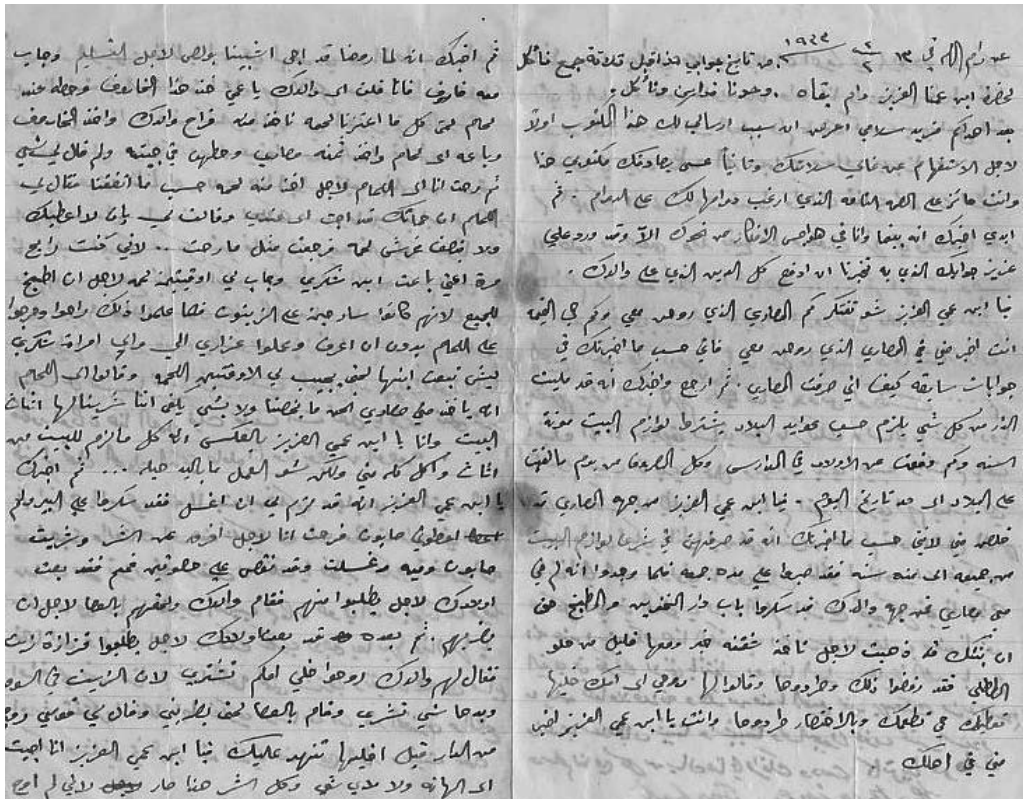 عن رام الله في ١٣ ٢/٢ ١٩٢٣ من تاريخ جوابي هذا قبل ثلاثة جمع
لحضرة ابن عمنا العزيز دام بقاه
بعد اهداكم مزيد سلامي اعرض ان سبب ارسالي لك هذا المكتوب اولا
لاجل الاستفهام عن غالي سلامتك وثانياً عسى يصادفك مكتوبي هذا
وانت حائز على الصحة التامة الذي ارغب دوامها لك على الدوام . ثم
ابدي اخبرك انه بينما وانا في هواجس الافتكار من نحوك الا وقد ورد علي
عزيز جوابك الذي به تخبرنا ان ادفع كل الدين الذي على والدك .
فيا ابن عمي العزيز شو تفتكر كم المصاري الذي روحن معي وكم هي القيمة
انت اخبر مني في المصاري الذي روحن معي فاني حسب ما اخبرتك في
جوابات سابقة كيف اني صرفت المصاري . ثم ارجع واخبرك انه قد مليت
الدار من كل شي يلزم حسب عوايد البلاد يشترط لوازم البيت مونة
السنه وكم دفعت عن الاولاد في المدارس وكل المصروف من يوم ما لفيت
على البلاد الى حد تاريخ اليوم . فيا ابن عمي العزيز من جهة المصاري قد
خلصن مني لانني حسب ما اخبرتك انه قد صرفتهن في لوازم البيت
من جميعه الى منه سنه فقد صبروا علي مدة جمعه فلما وجدوا انه لم في
معي مصاري فمن جهة والدك قد سكروا باب دار الخزين والطبخ حتى
ان بنتك قد ذهبت لاجل تاخذ شقفة خبز ومعها قليل من حلو
فقد رفضوا ذلك وطردوها وقالوا لها روحي الى امك خليها
تطعمك هي تطعمك وبالاختصار طردوها وانت يا ابن عمي العزيز اخبر
مني في اهلك
ثم اخبرك انه لما روحنا قد اجى اشبينا لاجل وجاب
معه خاروف فانا قلت الى والدك يا عمي خذ هذا الخاروف وحطه عند
لحام حتى كل ما اعتزنا لحمه ناخذ منه فراح والدك واخذ الخاروف
وباعه الى لحام واخذ ثمنه مصاري وحطهن في جيبته ولم قال لي شي
ثم رحت انا الى اللحام لاجل اخذ منه لحمه حسب ما اتفقنا فقال لي
اللحام ان حماتك قد اجت الى عندي وقالت لي بان لا اعطيك
ولا بنصف غرش لحمة فرجعت مثل ما رحت .. لاني كنت رايح
مرة اخي باعت ابن شكري وجاب لي اوقيتين لحمه لاجل ان اطبخ
للجميع لانهم كانوا سارحين على الزيتون فلما علموا ذلك راحوا وهرجوا
على اللحام بدون ان اعرف وعملوا عزاري الي والى امراة شكري
ليش تبعت ابنها لحتى يجيب لي الاوقيتين اللحمه وقالوا الى اللحام
انه ياخذ مني مصاري احنا ما بخصنا ولا بشي يكفي اننا شرينالها اثاث
البيت وانا يا ابن عمي العزيز بالعكس انه كل ما لزم للبيت من
اثاث واكل كله مني ولكن شو العمل ما باليد حيله .... ثم اخبرك
يا ابن عمي العزيز انه قد لزم لي ان اغسل فقد سكروا على البير ولم
يعطوني صابون فرحت انا لاجل وشريت
صابون وميه وغسلت وقد نقص علي فقد بعت
اولادك لاجل يطلبوا منهم فقام والدك ولحقهم بالعصا لاجل ان
يضربهم . ثم بعده قد بعت اولادك لاجل يطلعوا قزازة زيت
فقال لهم والدك روحوا خلي امكم تشتري لان الزيت في السوق
وبدها شي تشري وقام بالعصا لحتى يضربني وقال لي قومي روحي
من الدار قبل اخليها تنهد عليك فيا ابن عمي العزيز انا اجيت
الى الهانه ولا لاي شي وكل الشر هذا صار لاني لم